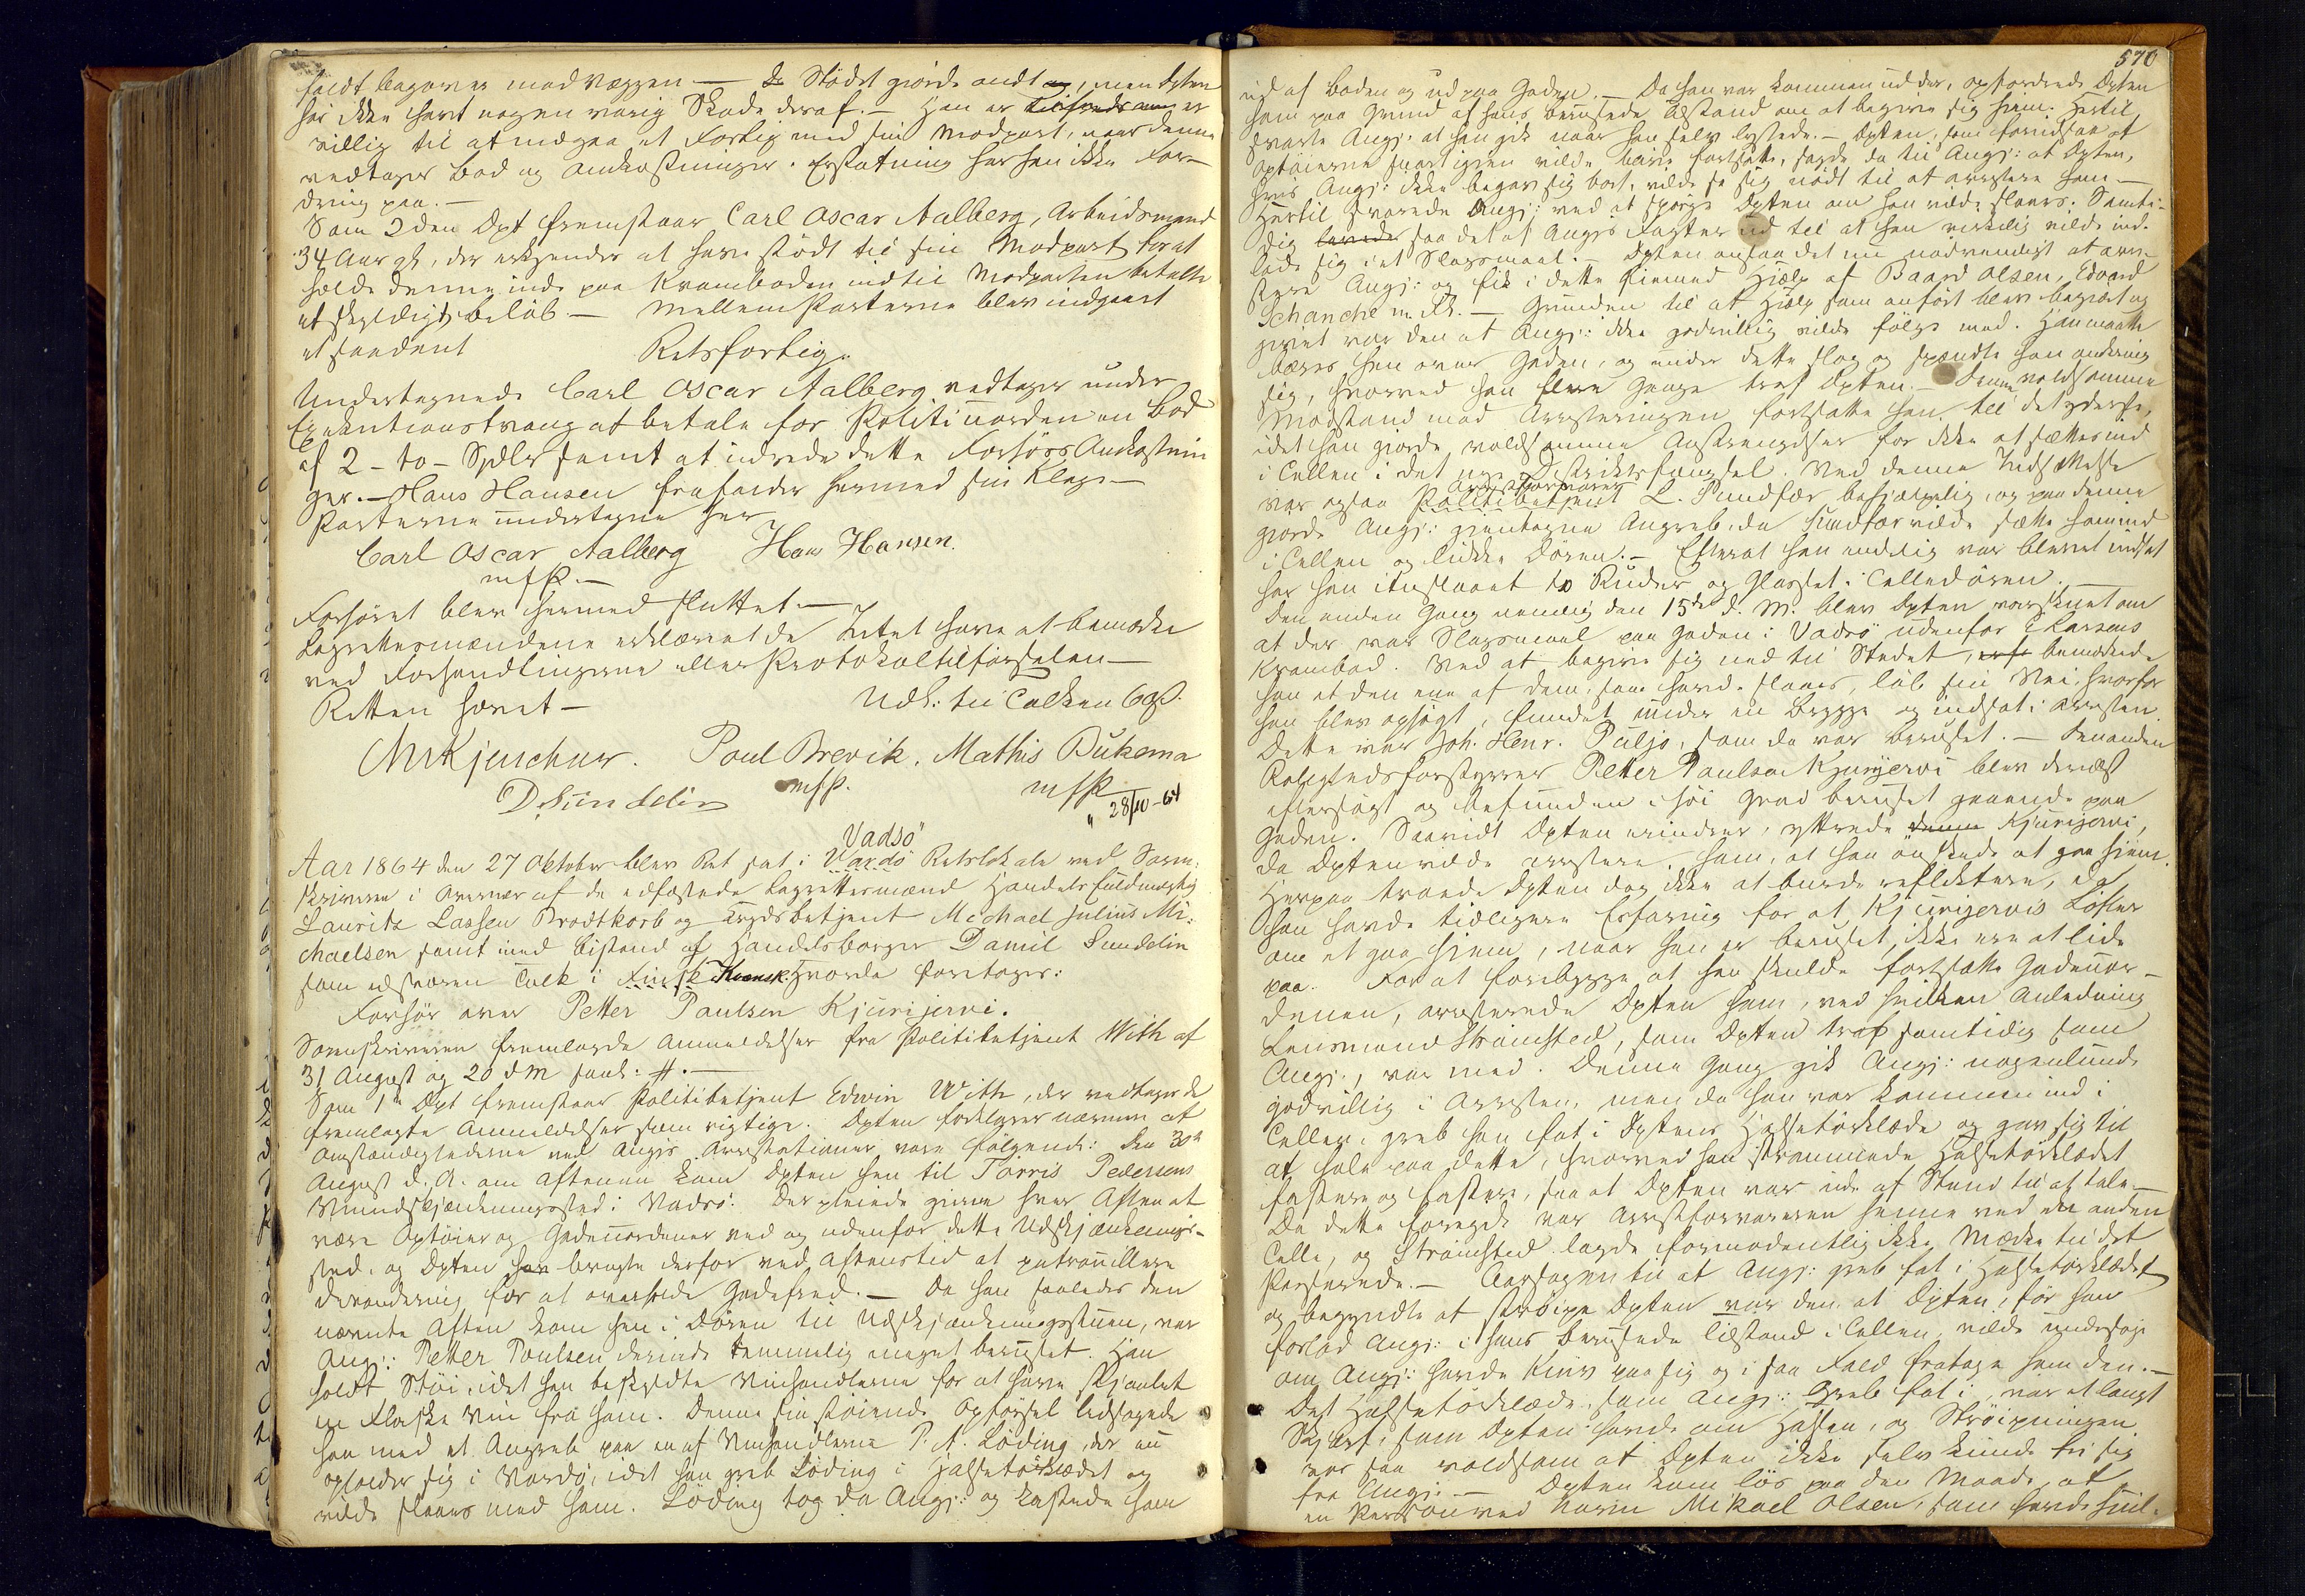 faldt bagover mod Væggen — Stødet gjorde ondt, men Dpten
har ikke havt nogen varig Skade deraf. — Han er er
villig til at indgaa et Forlig med sin Modpart, naar denne
vedtager Bod og Omkostninger. Erstatning har han ikke For-
dring paa. —
Som 2den Dpt fremstaar Carl Oscar Aalberg, Arbeidsmand
34 Aar gl., der erkjender at have stødt til sin Modpart for at
holde denne inde paa Kramboden indtil Modparten betalte
et skyldigt Beløb. — Mellem Parterne blev indgaaet
et saadant
Retsforlig.
Undertegnede Carl Oscar Aalberg vedtager under
Exekutionstvang at betale for Politiuorden en Bod
af 2 - to - Spdlr samt at udrede dette Forhørs Omkostnin
ger. — Hans Hansen frafalder hermed sin Klage —
Parterne undertegne her
Carl Oscar Aalberg Hans Hansen.
m f P. —
Forhøret blev hermed sluttet. —
Lagrettesmændene erklærede Intet have at bemærke
ved Forhandlingerne eller Protokoltilførselen —
Retten hævet — Udb: til Tolken 60 ß.
Poul Brevik, Mathis Bukema
mfP. mfP
D. Sundelin
28/10-64
Vadsö
Aar 1864 den 27 Oktober blev Ret sat i Vardö Retslokale ved Soren-
skriveren i Overvær af de edfæstede Lagrettesmænd Handelsfuldmægtig
Lauritz Lassen Brodtkorb og Krydsbetjent Michael Julius Mi-
chaelsen samt med Bistand af Handelsborger Daniel Sundelin
som edsvoren Tolk i Finsk Kvænsk. Hvorda foretages:
Forhör over Petter Paulsen Kjurijervi.
Sorenskriveren fremlagde Anmeldelser fra Politibetjent With af
31 August og 20 d M saal: #. —
Som 1ste Dpt fremstaar Politibetjent Edvin With, der vedtager de
fremlagte Anmeldelser som rigtige. Dpten forklarer nærmere at
Omstændighederne ved Angjs Arrestationer vare følgende: Den 30te
August d. A. om Aftenen kom Dpten hen til Torris Pedersens
Vinudskjænkningssted i Vadsö. Der pleiede gjerne hver Aften at
være Optøier og Gadeuordener ved og udenfor dette Udskjænknings-
sted, og Dpten brugte derfor ved Aftenstid at patrouillere
deromkring for at overholde Gadefred. — Da han saaledes den
nævnte Aften kom hen i Døren til Udskjænkningsstuen, var
Angj: Petter Poulsen derinde temmelig meget beruset. Han
holdt Støi, idet han beskyldte Vinhandlerne for at have stjaalet
en Flaske Vin fra ham. Denne sin støiende Opførsel ledsagede
han med et Angreb paa en af Vinhandlerne P. A. Löding, der nu
opholder sig i Vardö, idet han greb Löding i Halstørklædet og
vilde slaaes med ham. Löding tog da Angj: og kastede ham
570
ud af Boden og ud paa Gaden. — Da han var kommen ud der, opfordrede Dpten
ham paa Grund af hans berusede Tilstand om at begive sig hjem. Hertil
svarte Angj: at han gik naar han selv lystede. — Dpten, som forudsaa at
Optøierne snart igjen vilde blive fortsatte, sagde da til Angj: at Dpten,
hvis Angj: ikke begav sig bort, vilde se sig nødt til at arrestere ham. —
Hertil svarede Angj: ved at spørge Dpten om han vilde slaaes. Samti-
dig saa det af Angjs Fagter ud til at han virkelig vilde ind-
lade sig i et Slagsmaal. — Dpten ansaa det nu nødvendigt at arre-
stere Angj: og fik i dette Øiemed Hjælp af Baard Olsen, Edvard
Schanche m. Fl. — Grunden til at Hjælp som anført blev begjært og
givet var den at Angj: ikke godvillig vilde følge med. Han maatte
bæres hen over Gaden, og under dette slog og spændte han omkring
sig, hvorved han flere Gange traf Dpten. — Denne voldsomme
Modstand mod Arresteringen fortsatte han til det yderste,
idet han gjorde voldsomme Anstrengelser for ikke at sættes ind
i Cellen i det nye Distriktsfængsel. Ved denne Indsættelse
var ogsaa Arrestforvarer Politibetjent L. Pundfær behjælpelig, og paa denne
gjorde Angj: gjentagne Angreb, da Pundfær vilde sætte ham ind
i Cellen og lukke Døren. — Efterat han endelig var blevet indsat
har han itu slaaet to Ruder og Glasset i Celledøren. —
Den anden Gang nemlig den 15de d. M. blev Dpten varslet om
at der var Slagsmaal paa Gaden i Vadsö udenfor E Larsens
Krambod. Ved at begive sig ned til Stedet, bemærkede
han at den ene af dem, som havde slaaes, løb sin Vei, hvorfor
han blev opsøgt, fundet under en Brygge og indsat i Arresten.
Dette var Joh. Henr. Puljo, som da var beruset. — Den anden
Rolighedsforstyrrer Petter Paulsen Kjurijervi blev dernæst
eftersøgt og befunden i høi Grad beruset gaaende paa
Gaden. Saavidt Dpten erindrer, yttrede Kjurijervi,
da Dpten vilde arrestere ham, at han ønskede at gaa hjem.
Herpaa troede Dpten dog ikke at burde reflektere, da
han havde tidligere Erfaring for at Kjurijervis Løfter
om at gaa hjem, naar han er beruset, ikke ere at lide
paa. For at forebygge at han skulde fortsætte Gadeuor-
denen, arresterede Dpten ham, ved hvilken Anledning
Lensmand Strömsted, som Dpten traf samtidig som
Angj:, var med. Denne Gang gik Angj: nogenlunde
godvillig i Arresten, men da han var kommen ind i
Cellen, greb han fat i Dptens Halstørklæde og gav sig til
at hale paa dette, hvorved han strammede Halstørklædet
fastere og fastere, saa at Dpten var ude af Stand til at tale. —
Da dette foregik var Arrestforvareren henne ved en anden
Celle, og Strömsted lagde formodentlig ikke Mærke til det
Passerede. — Aarsagen til at Angj: greb fat i Halstørklædet
og begyndte at strøipe Dpten var den, at Dpten, før han
forlod Angj: i hans berusede Tilstand i Cellen, vilde undersøge
om Angj: havde Kniv paa sig og i saa Fald fratage ham den. —
Det Halstørklæde, som Angj: greb fat i, var et langt
Skjærf, som Dpten havde om Halsen, og Strøipningen
var saa voldsom at Dpten ikke selv kunde fri sig
fra Angj. — Dpten kom løs paa den Maade, at
en Person ved Navn Mikael Olsen, som havde hjul-